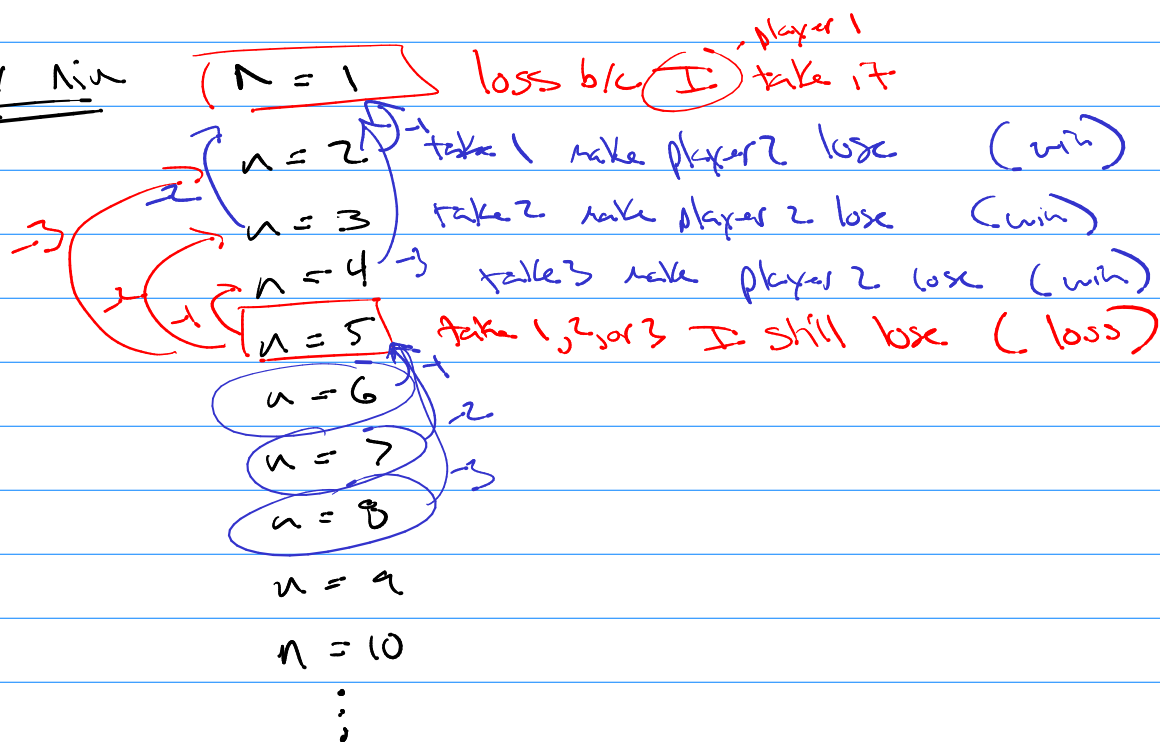 player 1
Nim n = 1 loss b/c I take it
n = 2 -1 take 1 make player 2 lose (win)
-2 n = 3 take 2 make player 2 lose (win)
-3 n = 4 -3 take 3 make player 2 lose (win)
-2 -1 n = 5 take 1, 2, or 3 I still lose (loss)
n = 6 -1
-2
n = 7
-3
n = 8
n = 9
n = 10
⋮